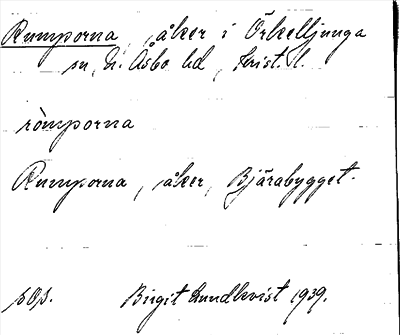 Rumporna, åker i Örkelljunga
sn, N. Åsbo hd, Krist. l.
ròmporna
Rumporna, åker, Bjärabygget.
sOs. Birgit Lundkvist 1939.